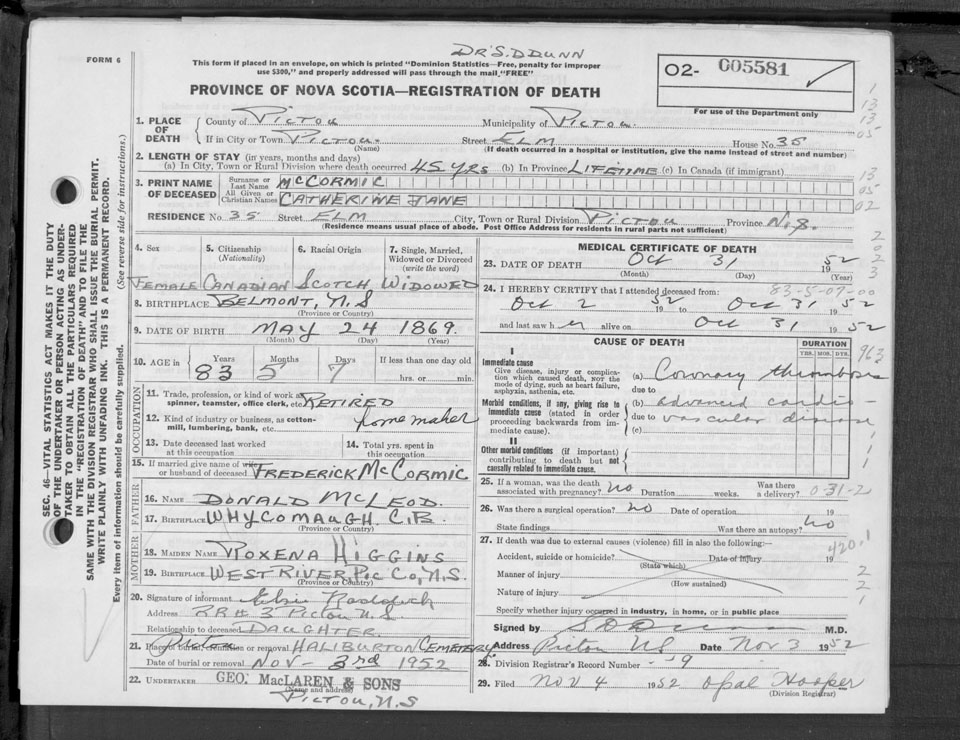 DR'S. D DUNN
FORM 6
This form if placed in an envelope, on which is printed "Dominion Statistics—Free, penalty for improper
use $300," and properly addressed will pass through the mail "FREE"
PROVINCE OF NOVA SCOTIA—REGISTRATION OF DEATH
O2- 005581
For use of the Department only
1. PLACE OF DEATH
County of PICTOU Municipality of PICTOU.
If in City or Town PICTOU. Street ELM House No. 35
(Name) (If death occurred in a hospital or institution, give the name instead of street and number)
2. LENGTH OF STAY (in years, months and days)
(a) In City, Town or Rural Division where death occurred 45 YRS (b) In Province LIFETIME (c) In Canada (if immigrant)
3. PRINT NAME OF DECEASED
Surname or Last Name MCCORMIC
All Given or Christian Names CATHERINE JANE
RESIDENCE No. 35 Street ELM City, Town or Rural Division PICTOU Province N.S.
(Residence means usual place of abode. Post Office Address for residents in rural parts not sufficient)
4. Sex 5. Citizenship (Nationality) 6. Racial Origin 7. Single, Married, Widowed or Divorced (write the word)
FEMALE CANADIAN SCOTCH WIDOWED
8. BIRTHPLACE BELMONT, N.S
(Province or Country)
9. DATE OF BIRTH MAY 24 1869.
(Month) (Day) (Year)
10. AGE in Years Months Days If less than one day old
83 5 7 hrs. or min.
OCCUPATION
11. Trade, profession, or kind of work as
spinner, teamster, office clerk, etc. RETIRED
12. Kind of industry or business, as cotton-
mill, lumbering, bank, etc. home maker
13. Date deceased last worked
at this occupation
14. Total yrs. spent in
this occupation
15. If married give name of wife
or husband of deceased FREDERICK MCCORMIC
FATHER
16. NAME DONALD MCLEOD.
17. BIRTHPLACE WHYCOMAUGH, C.B.
(Province or Country)
MOTHER
18. MAIDEN NAME ROXENA HIGGINS
19. BIRTHPLACE WEST RIVER PIC CO, N.S.
(Province or Country)
20. Signature of informant Elsie
Address RR # 3 Pictou N.S.
Relationship to deceased DAUGHTER.
21. Place of burial, cremation or removal HALIBURTON CEMETERY
Date of burial or removal NOV - 3rd 1952
22. UNDERTAKER GEO. MacLAREN & SONS
(Name and address)
PICTOU, N.S
MEDICAL CERTIFICATE OF DEATH
23. DATE OF DEATH Oct 31 1952
(Month) (Day) (Year)
24. I HEREBY CERTIFY that I attended deceased from: 83-5-07-00
Oct 2 1952 to Oct 31 1952
and last saw her alive on Oct 31 1952
CAUSE OF DEATH DURATION
YRS. MOS. DYS.
I
Immediate cause
Give disease, injury or complica-
tion which caused death, NOT the
mode of dying, such as heart failure,
asphyxia, asthenia, etc.
(a) Coronary thrombosis
due to
Morbid conditions, if any, giving rise to
immediate cause (stated in order
proceeding backwards from im-
mediate cause).
(b) advanced cardio -
due to vascular disease
(c)
II
Other morbid conditions (if important)
contributing to death but not
causally related to immediate cause.
25. If a woman, was the death
associated with pregnancy? no Duration weeks. Was there
a delivery? 0-31-2
26. Was there a surgical operation? no Date of operation 19
State findings Was there an autopsy? No
27. If death was due to external causes (violence) fill in also the following:—
420.1
Accident, suicide or homicide? Date of injury 19
(State which)
Manner of injury
(How sustained)
Nature of injury
Specify whether injury occurred in industry, in home, or in public place
Signed by S D Dunn M.D.
Address Pictou NS Date Nov 3 1952
28. Division Registrar's Record Number 59
29. Filed Nov 4 1952 Opal Hooper
(Division Registrar)
SEC. 46—VITAL STATISTICS ACT MAKES IT THE DUTY
OF THE UNDERTAKER OR PERSON ACTING AS UNDER-
TAKER TO OBTAIN ALL THE PARTICULARS REQUIRED
IN THE "REGISTRATION OF DEATH" AND TO FILE THE
SAME WITH THE DIVISION REGISTRAR WHO SHALL ISSUE THE BURIAL PERMIT.
WRITE PLAINLY WITH UNFADING INK. THIS IS A PERMANENT RECORD.
Every item of information should be carefully supplied. (See reverse side for instructions.)
1
13
13
05
13
05
02
2
0
2
3
963
1
1
1
2
2
1